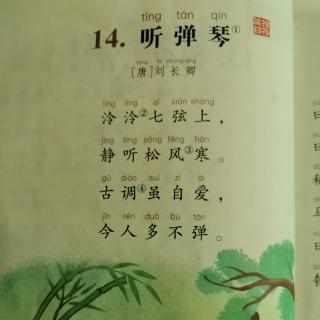 tīng tán qín
14. 听弹琴①
táng liú zhǎng qīng
[唐]刘长卿
líng líng qī xián shàng
泠泠②七弦上，
jìng tīng sōng fēng hán
静听松风③寒。
gǔ diào suī zì ài
古调④虽自爱，
jīn rén duō bù tán
今人多不弹。